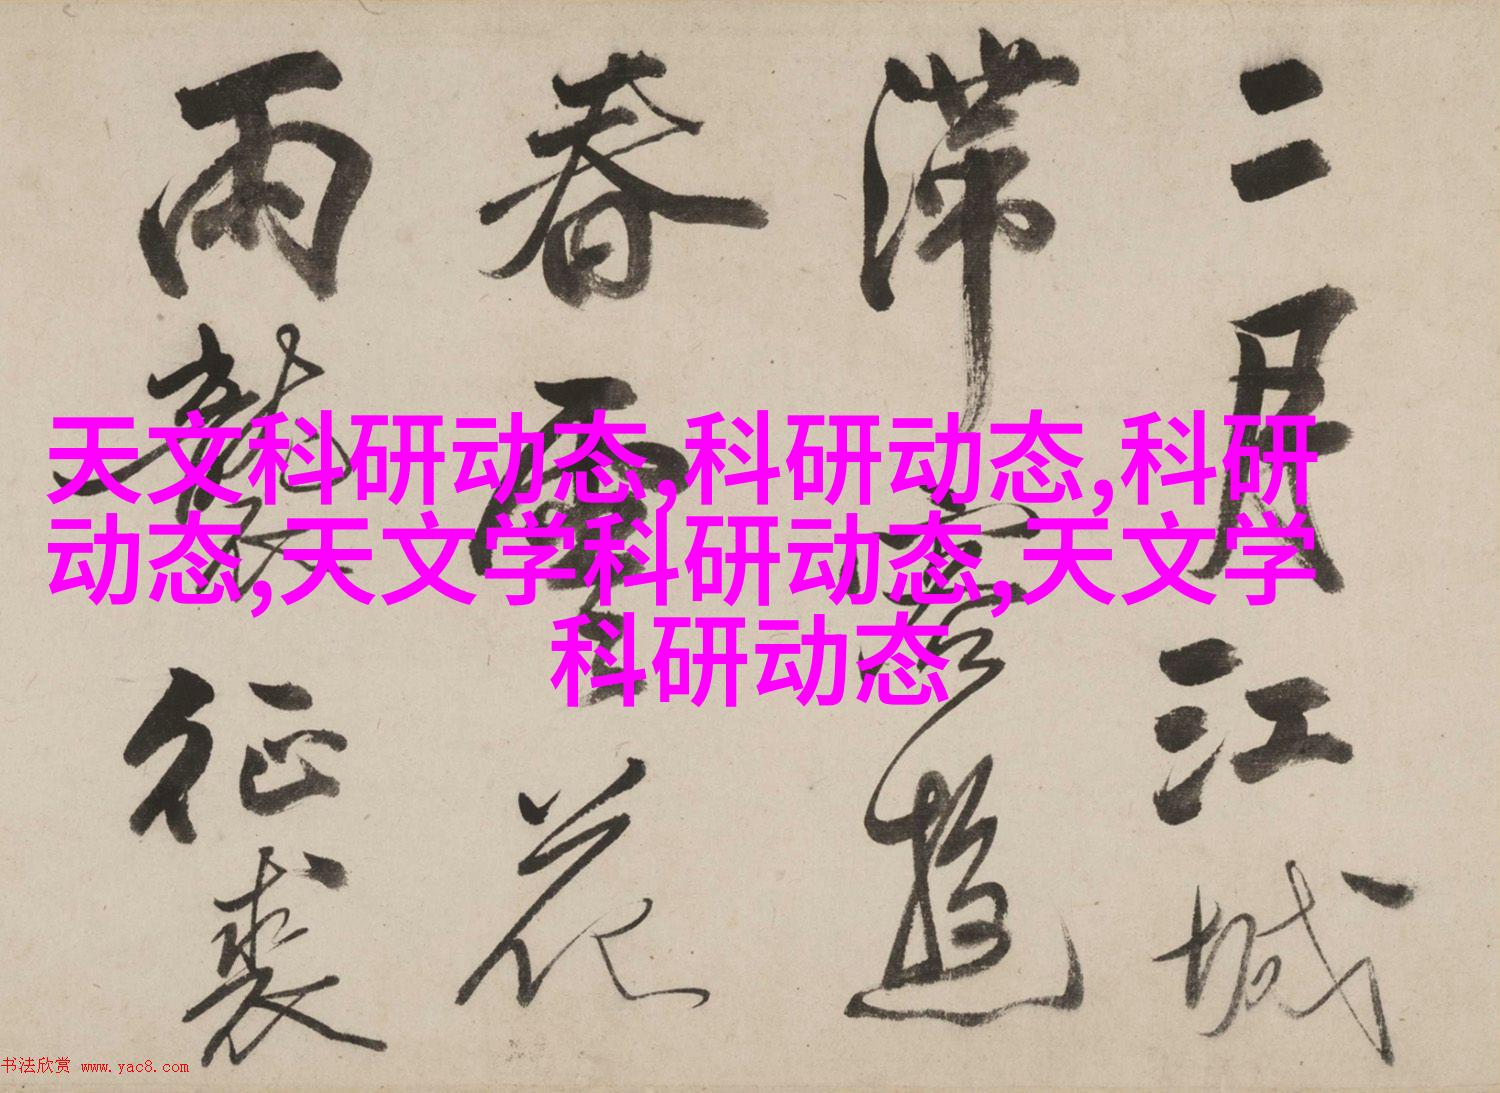 二月江城
滞客游
春雪花
雨袭征裘
天文科研动态,科研动态,科研
动态,天文学科研动态,天文学
科研动态
书法欣赏 www.yac8.com